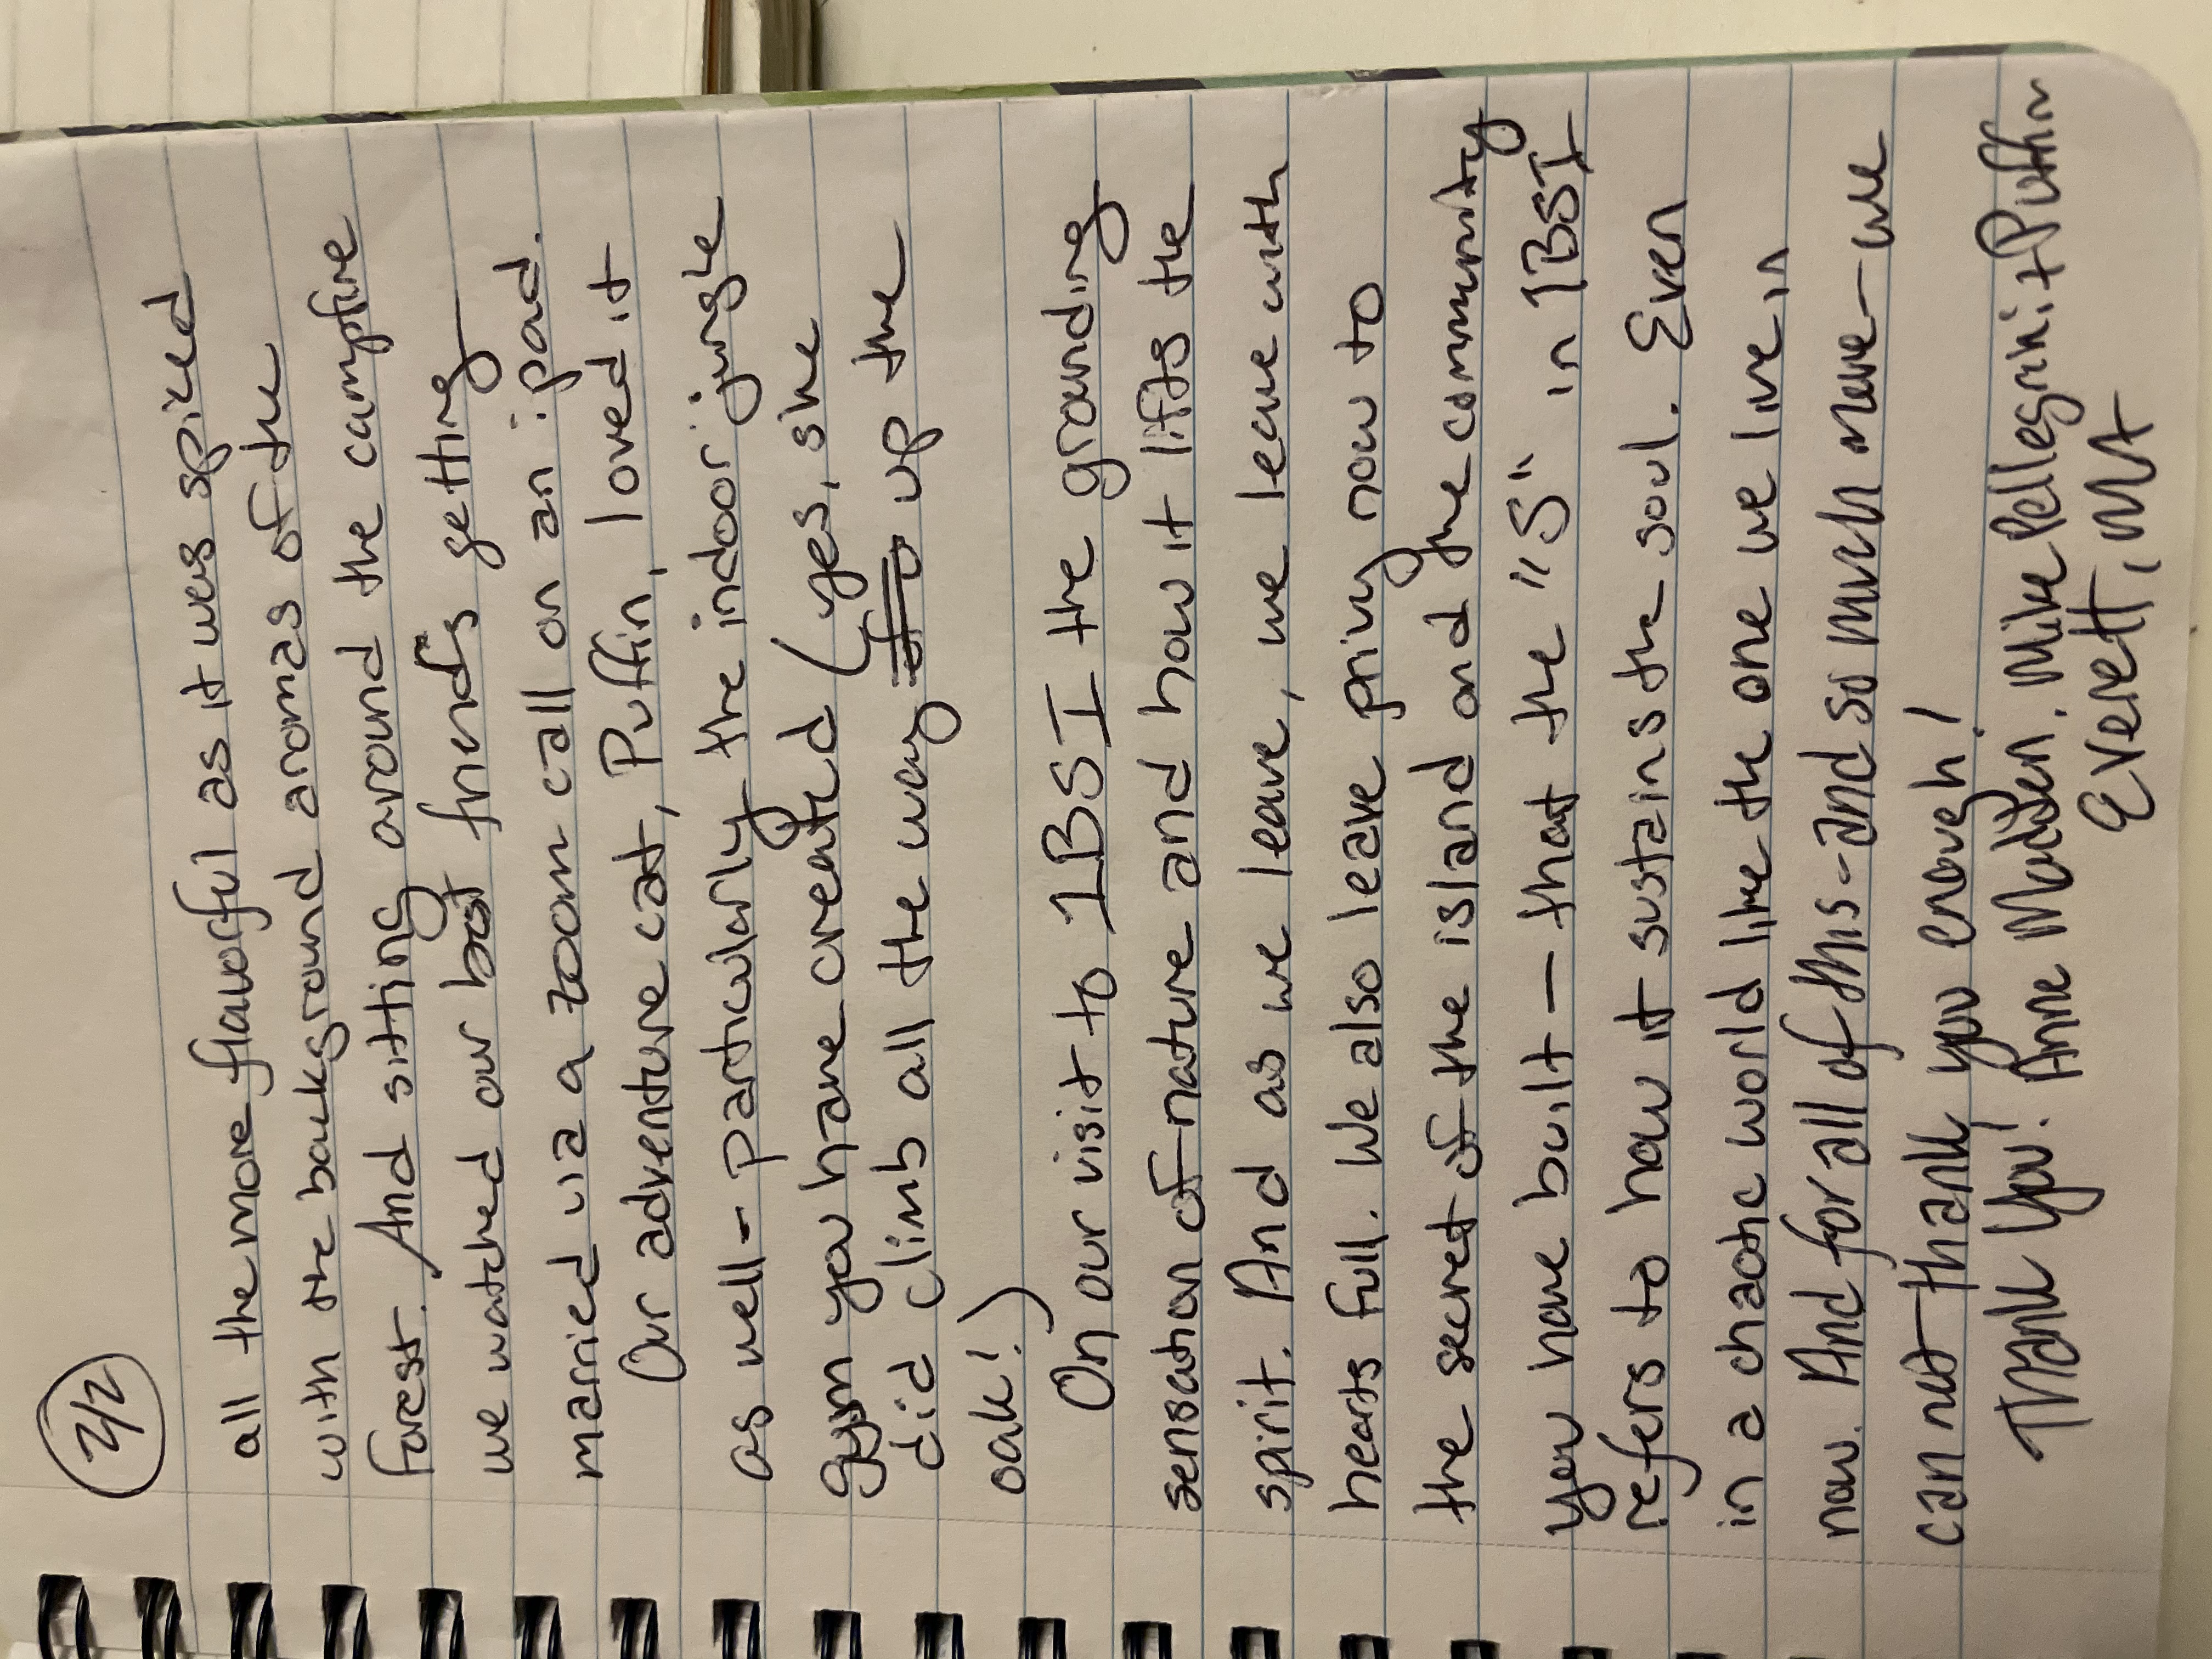 2/2
all the more flavorful as it was spiced
with the background aromas of the
forest. And sitting around the campfire
we watched our best friends getting
married via a zoom call on an ipad.
Our adventure cat, Puffin, loved it
as well - particularly the indoor jungle
gym you have created (yes, she
did climb all the way up the
oak!)
On our visit to 1BSI the grounding
sensation of nature and how it lifts the
spirit. And as we leave, we leave with
hearts full. We also leave privy now to
the secret of the island and the community
you have built - that the "S" in 1BSI
refers to how it sustains the soul. Even
in a chaotic world like the one we live in
now. And for all of this - and so much more - we
can not thank you enough!
Thank You! Anne Madden, Mike Pellegrini + Puffin
Everett, MA